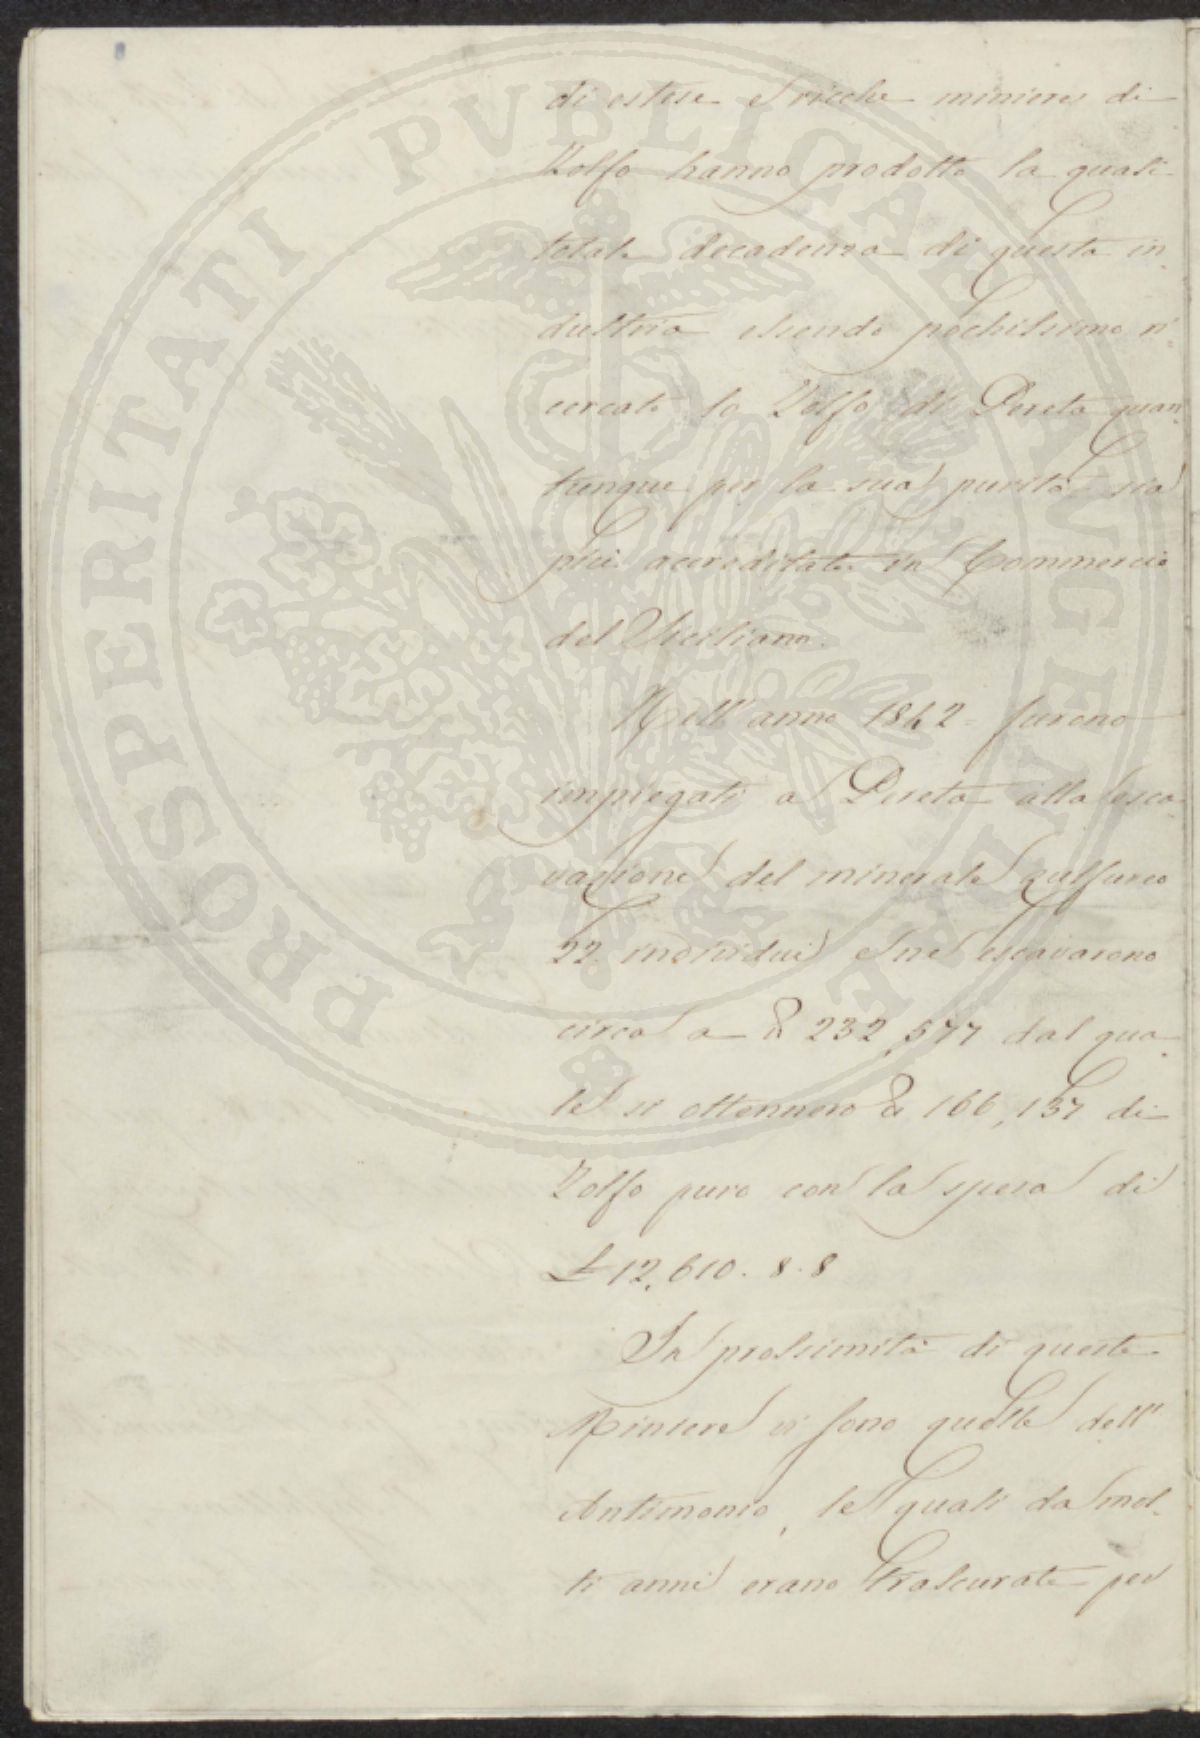 di estese e ricche miniere di
Zolfo hanno prodotto la quasi
totale decadenza di questa in-
dustria essendo pochissimo ri-
cercato lo Zolfo di Pereta quan-
tunque per la sua purità sia
più accreditato in Commercio
del Siciliano.
Nell'anno 1842 = furono
impiegati a Pereta alla esca-
vazione del minerale zulfureo
22 individui e ne escavarono
circa a ℔ 232,577 dal qua-
le si ottennero ℔ 166,137 di
Zolfo puro con la spesa di
£ 12,610. 8. 8
In prossimità di queste
Miniere vi sono quelle dell'
Antimonio, le quali da mol-
ti anni erano trascurate per
PROSPERITATI PVBLICAE AVGENDAE